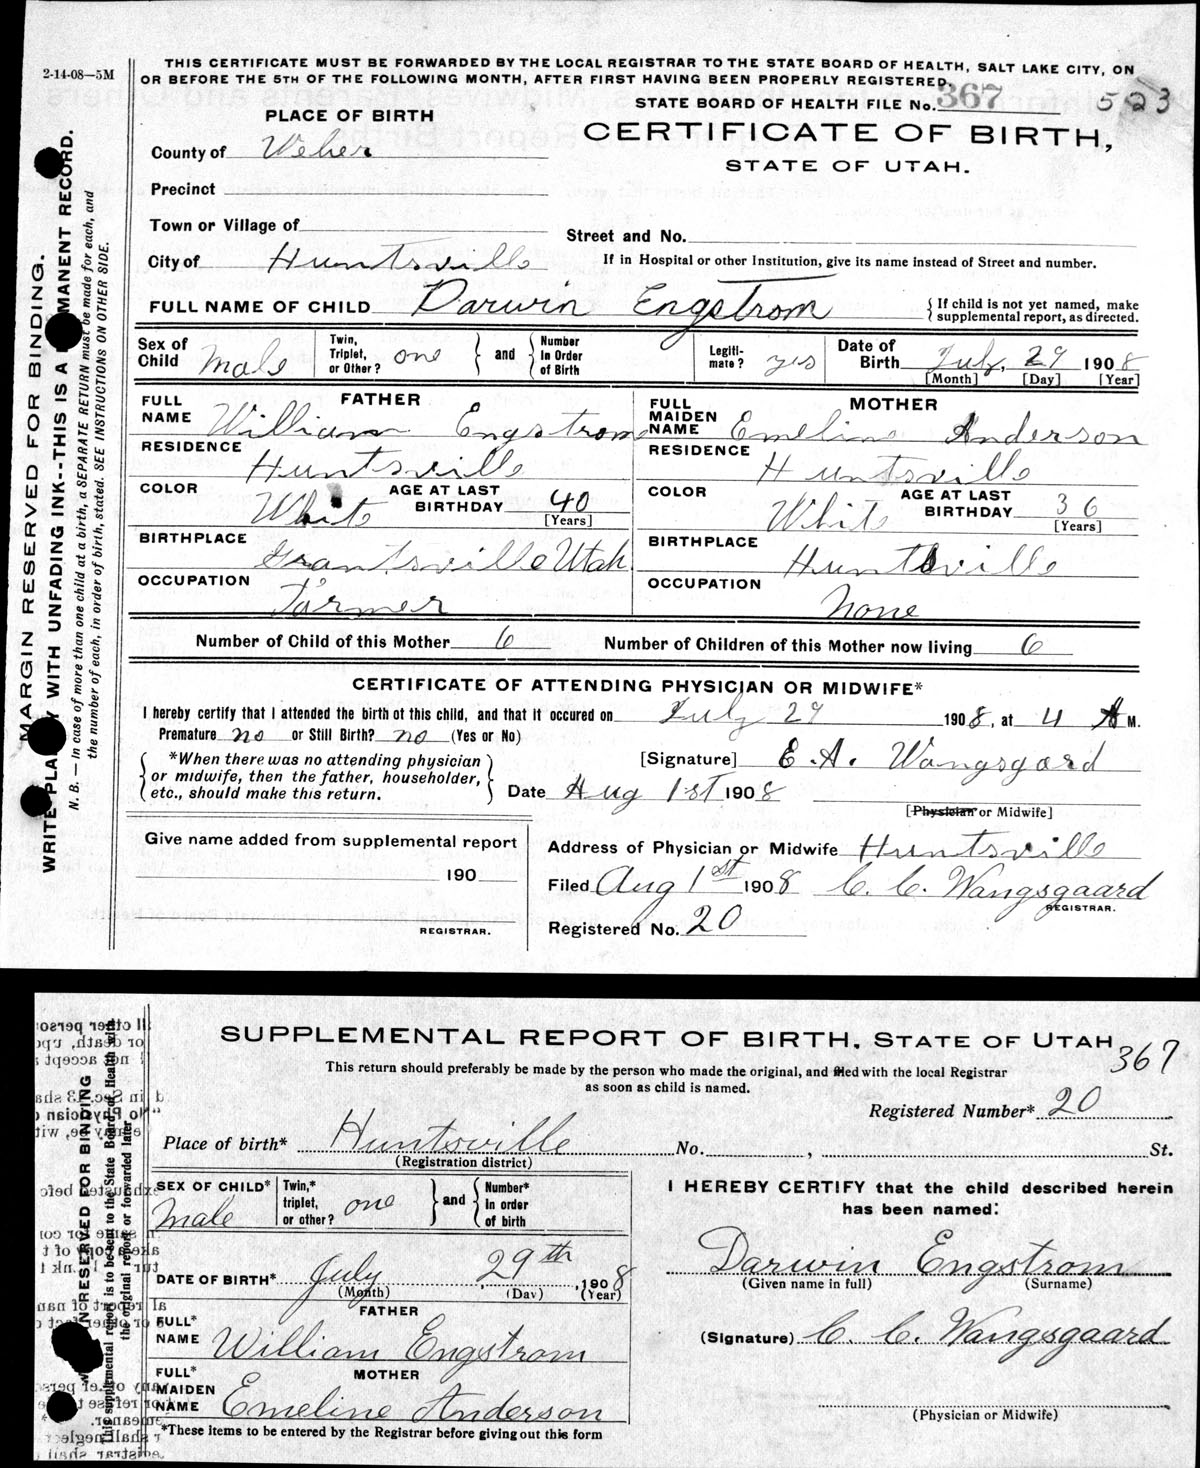 2-14-08—5M
THIS CERTIFICATE MUST BE FORWARDED BY THE LOCAL REGISTRAR TO THE STATE BOARD OF HEALTH, SALT LAKE CITY, ON
OR BEFORE THE 5TH OF THE FOLLOWING MONTH, AFTER FIRST HAVING BEEN PROPERLY REGISTERED.
STATE BOARD OF HEALTH FILE No. 367 523
PLACE OF BIRTH
CERTIFICATE OF BIRTH,
STATE OF UTAH.
County of Weber
Precinct
Town or Village of
Street and No.
City of Huntsville
If in Hospital or other Institution, give its name instead of Street and number.
FULL NAME OF CHILD Darwin Engstrom
{ If child is not yet named, make
supplemental report, as directed.
Sex of Child Male
Twin, Triplet, or Other? one } and { Number In Order of Birth
Legiti-mate? yes
Date of Birth July, 29 1908
[Month] [Day] [Year]
FATHER
FULL NAME William Engstrom
RESIDENCE Huntsville
COLOR White AGE AT LAST BIRTHDAY 40
[Years]
BIRTHPLACE Grantsville Utah
OCCUPATION Farmer
MOTHER
FULL MAIDEN NAME Emeline Anderson
RESIDENCE Huntsville
COLOR White AGE AT LAST BIRTHDAY 36
[Years]
BIRTHPLACE Huntsville
OCCUPATION None
Number of Child of this Mother 6 Number of Children of this Mother now living 6
CERTIFICATE OF ATTENDING PHYSICIAN OR MIDWIFE*
I hereby certify that I attended the birth of this child, and that it occured on July 29 1908, at 4 A M.
Premature no or Still Birth? no (Yes or No)
{ *When there was no attending physician
or midwife, then the father, householder,
etc., should make this return. }
[Signature] E. A. Wangsgard
Date Aug 1st 1908
[Physician or Midwife]
Give name added from supplemental report
190
REGISTRAR.
Address of Physician or Midwife Huntsville
Filed Aug 1st 1908 C. C. Wangsgaard
REGISTRAR.
Registered No. 20
MARGIN RESERVED FOR BINDING.
WRITE PLA Y WITH UNFADING INK--THIS IS A MANENT RECORD.
N. B. — In case of more than one child at a birth, a SEPARATE RETURN must be made for each, and
the number of each, in order of birth, stated. SEE INSTRUCTIONS ON OTHER SIDE.
SUPPLEMENTAL REPORT OF BIRTH, STATE OF UTAH
367
This return should preferably be made by the person who made the original, and filed with the local Registrar
as soon as child is named.
Registered Number* 20
Place of birth* Huntsville No. , St.
(Registration district)
SEX OF CHILD* Male
Twin,* triplet, or other? one } and { Number* In order of birth
DATE OF BIRTH* July 29th, 1908
(Month) (Day) (Year)
FATHER
FULL* NAME William Engstrom
MOTHER
FULL* MAIDEN NAME Emeline Anderson
*These items to be entered by the Registrar before giving out this form
I HEREBY CERTIFY that the child described herein
has been named:
Darwin Engstrom
(Given name in full) (Surname)
(Signature) C. C. Wangsgaard
(Physician or Midwife)
N RESERVED FOR BINDING
This supplemental report is to be sent to the State Board of Health with
the original report or forwarded later